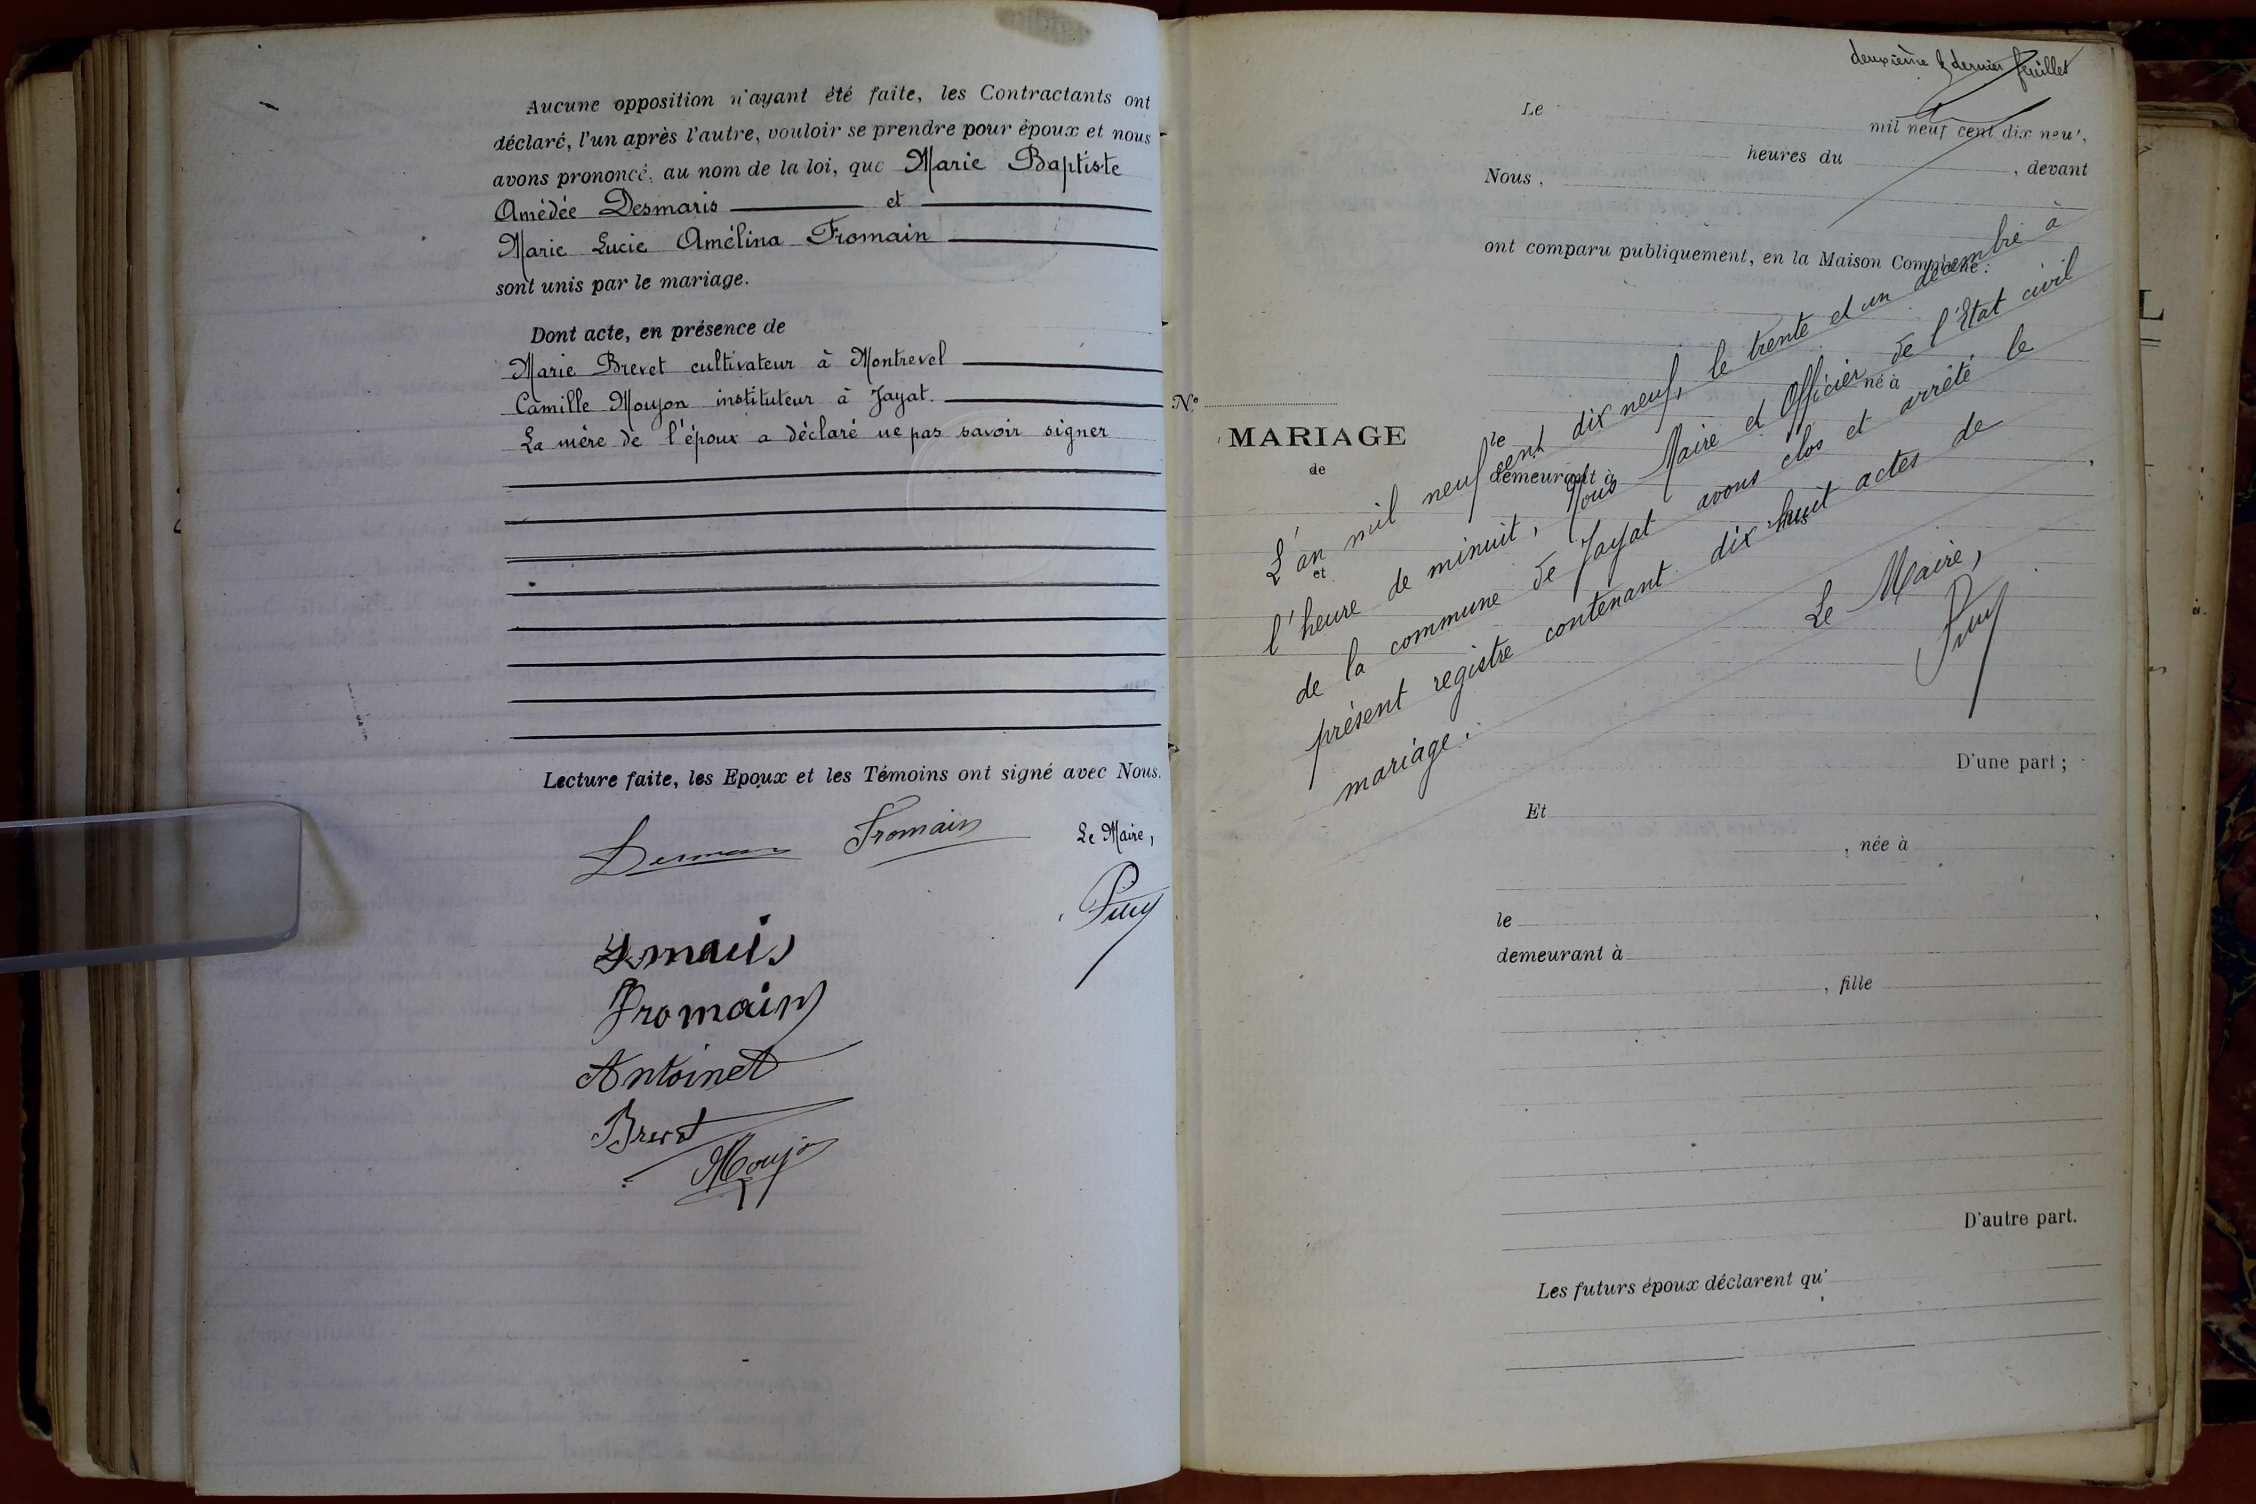 Aucune opposition n'ayant été faite, les Contractants ont
déclaré, l'un après l'autre, vouloir se prendre pour époux et nous
avons prononcé, au nom de la loi, que Marie Baptiste
Amédée Desmaris et
Marie Lucie Amélina Fromain
sont unis par le mariage.
Dont acte, en présence de
Marie Brevet cultivateur à Montrevel
Camille Moujon instituteur à Jayat.
La mère de l'époux a déclaré ne pas savoir signer
Lecture faite, les Epoux et les Témoins ont signé avec Nous.
Fromain
Le Maire,
Fromain
Antoinet
Brevet
Moujon
deuxième & dernier feuillet
Le
mil neuf cent dix neuf,
heures du , devant
Nous,
ont comparu publiquement, en la Maison Commune:
N°
MARIAGE
de
et
né à
le
demeurant à
L'an mil neuf cent dix neuf, le trente et un décembre à
l'heure de minuit, Nous Maire et Officier de l'Etat civil
de la commune de Jayat avons clos et arrêté le
présent registre contenant dix huit actes de
mariage.
Le Maire,
D'une part;
Et
, née à
le
demeurant à
, fille
D'autre part.
Les futurs époux déclarent qu'